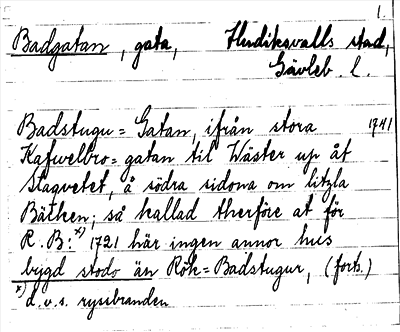 1.
Badgatan, gata, Hudiksvalls stad,
Gävleb. l.
Badstugu=Gatan, ifrån stora 1741
Kafwelbro=gatan til Wäster up åt
Slagvetet, å södra sidona om litzla
Bäcken; så kallad therföre at för
R. B:x) 1721 här ingen annor hus
bygd stodo än Rök=Badstugur, (forts.)
x) d.v.s. ryssbranden